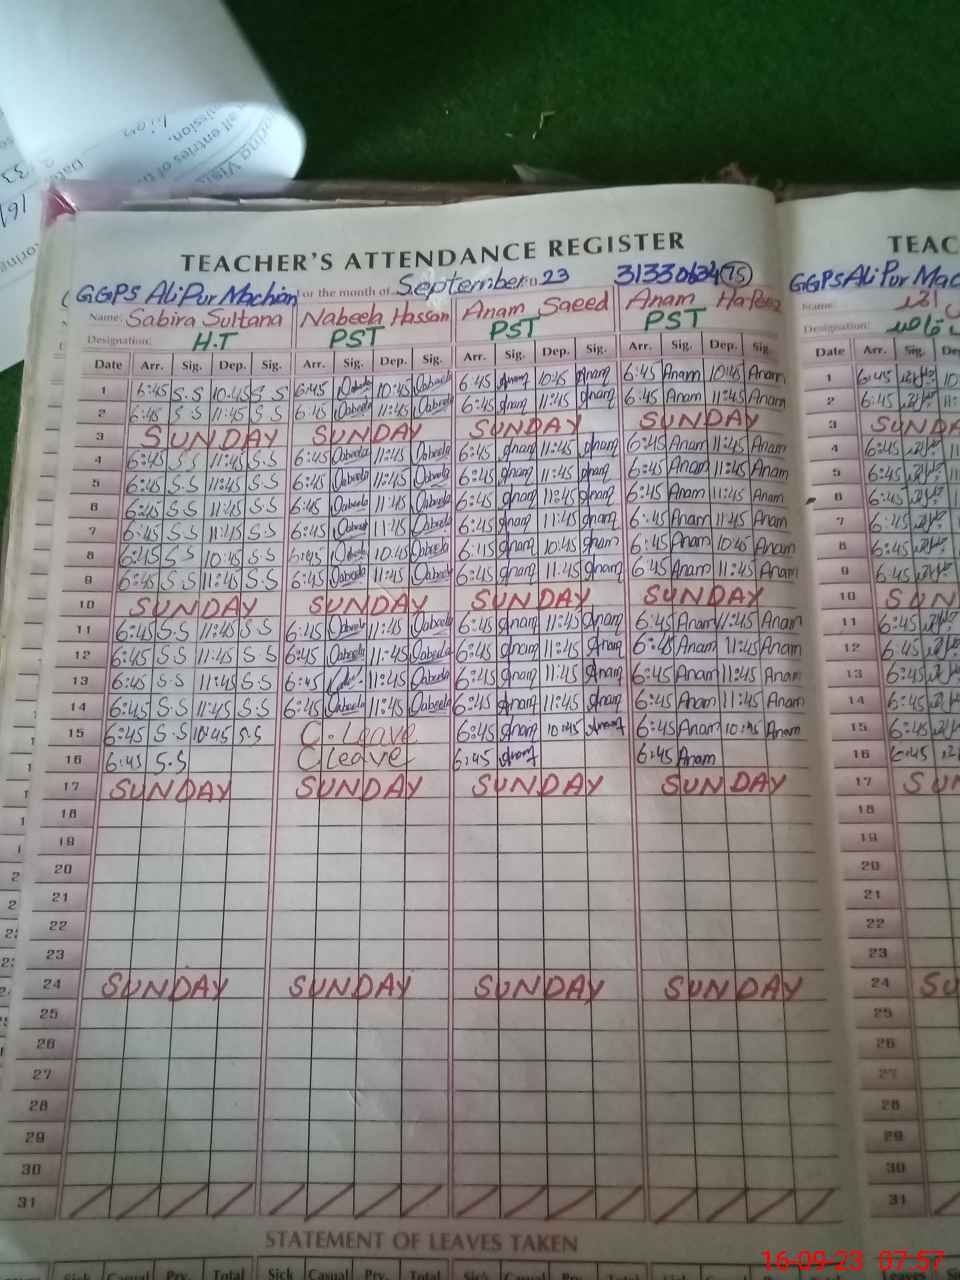 TEACHER'S ATTENDANCE REGISTER
GGPS AliPur Machian for the month of September 23 31330634 (75)
Name: Sabira Sultana Nabeela Hassan Anam Saeed Anam Hafeez
Designation: H.T PST PST PST
Date Arr. Sig. Dep. Sig. Arr. Sig. Dep. Sig. Arr. Sig. Dep. Sig. Arr. Sig. Dep. Sig.
1 6:45 S.S 10:45 S.S 6:45 10:45 6:45 Anam 10:45 Anam 6:45 Anam 10:45 Anam
2 6:45 S.S 11:45 S.S 6:45 11:45 6:45 Anam 11:45 Anam 6:45 Anam 11:45 Anam
3 SUNDAY SUNDAY SUNDAY SUNDAY
4 6:45 S.S 11:45 S.S 6:45 11:45 6:45 Anam 11:45 Anam 6:45 Anam 11:45 Anam
5 6:45 S.S 11:45 S.S 6:45 11:45 6:45 Anam 11:45 Anam 6:45 Anam 11:45 Anam
6 6:45 S.S 11:45 S.S 6:45 11:45 6:45 Anam 11:45 Anam 6:45 Anam 11:45 Anam
7 6:45 S.S 11:45 S.S 6:45 11:45 6:45 Anam 11:45 Anam 6:45 Anam 11:45 Anam
8 6:45 S.S 10:45 S.S 6:45 10:45 6:45 Anam 10:45 Anam 6:45 Anam 10:45 Anam
9 6:45 S.S 11:45 S.S 6:45 11:45 6:45 Anam 11:45 Anam 6:45 Anam 11:45 Anam
10 SUNDAY SUNDAY SUNDAY SUNDAY
11 6:45 S.S 11:45 S.S 6:45 11:45 6:45 Anam 11:45 Anam 6:45 Anam 11:45 Anam
12 6:45 S.S 11:45 S.S 6:45 11:45 6:45 Anam 11:45 Anam 6:45 Anam 11:45 Anam
13 6:45 S.S 11:45 S.S 6:45 11:45 6:45 Anam 11:45 Anam 6:45 Anam 11:45 Anam
14 6:45 S.S 11:45 S.S 6:45 11:45 6:45 Anam 11:45 Anam 6:45 Anam 11:45 Anam
15 6:45 S.S 10:45 S.S C.Leave 6:45 Anam 10:45 Anam 6:45 Anam 10:45 Anam
16 6:45 S.S C leave 6:45 Anam 6:45 Anam
17 SUNDAY SUNDAY SUNDAY SUNDAY
18
19
20
21
22
23
24 SUNDAY SUNDAY SUNDAY SUNDAY
25
26
27
28
29
30
31
STATEMENT OF LEAVES TAKEN
Sick Casual Prv. Total Sick Casual Prv. Total
TEAC
GGPS AliPur Mac
Name:
Designation:
Date Arr. Sig.
1 6:45
2 6:45
3 SUNDA
4 6:45
5 6:45
6 6:45
7 6:45
8 6:45
9 6:45
10 SUN
11 6:45
12 6:45
13 6:45
14 6:45
15 6:45
16 6:45
17 SU
18
19
20
21
22
23
24 SU
25
26
27
28
29
30
31
16-09-23 07:57